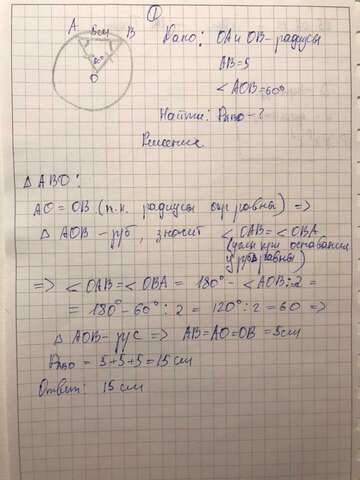 ①
A 5см B
60°
O
Дано: OA и OB - радиусы
AB = 5
∠AOB = 60°
Найти: P - ?
Решение
△ ABO:
AO = OB (т.к. радиусы окр равны) =>
△ AOB - р/б, значит ∠OAB = ∠OBA
(углы при основании
у р/б равны)
=> ∠OAB = ∠OBA = 180° - ∠AOB : 2 =
= 180° - 60° : 2 = 120° : 2 = 60 =>
△ AOB - р/с => AB = AO = OB = 5см
P = 5+5+5 = 15 см
Ответ: 15 см